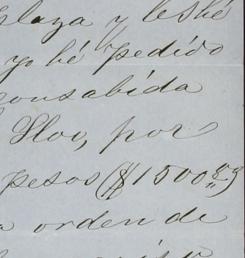 plaza y les hé
yo hé pedido
consabida
Slov, por
pesos ($1500 00/)
a orden de